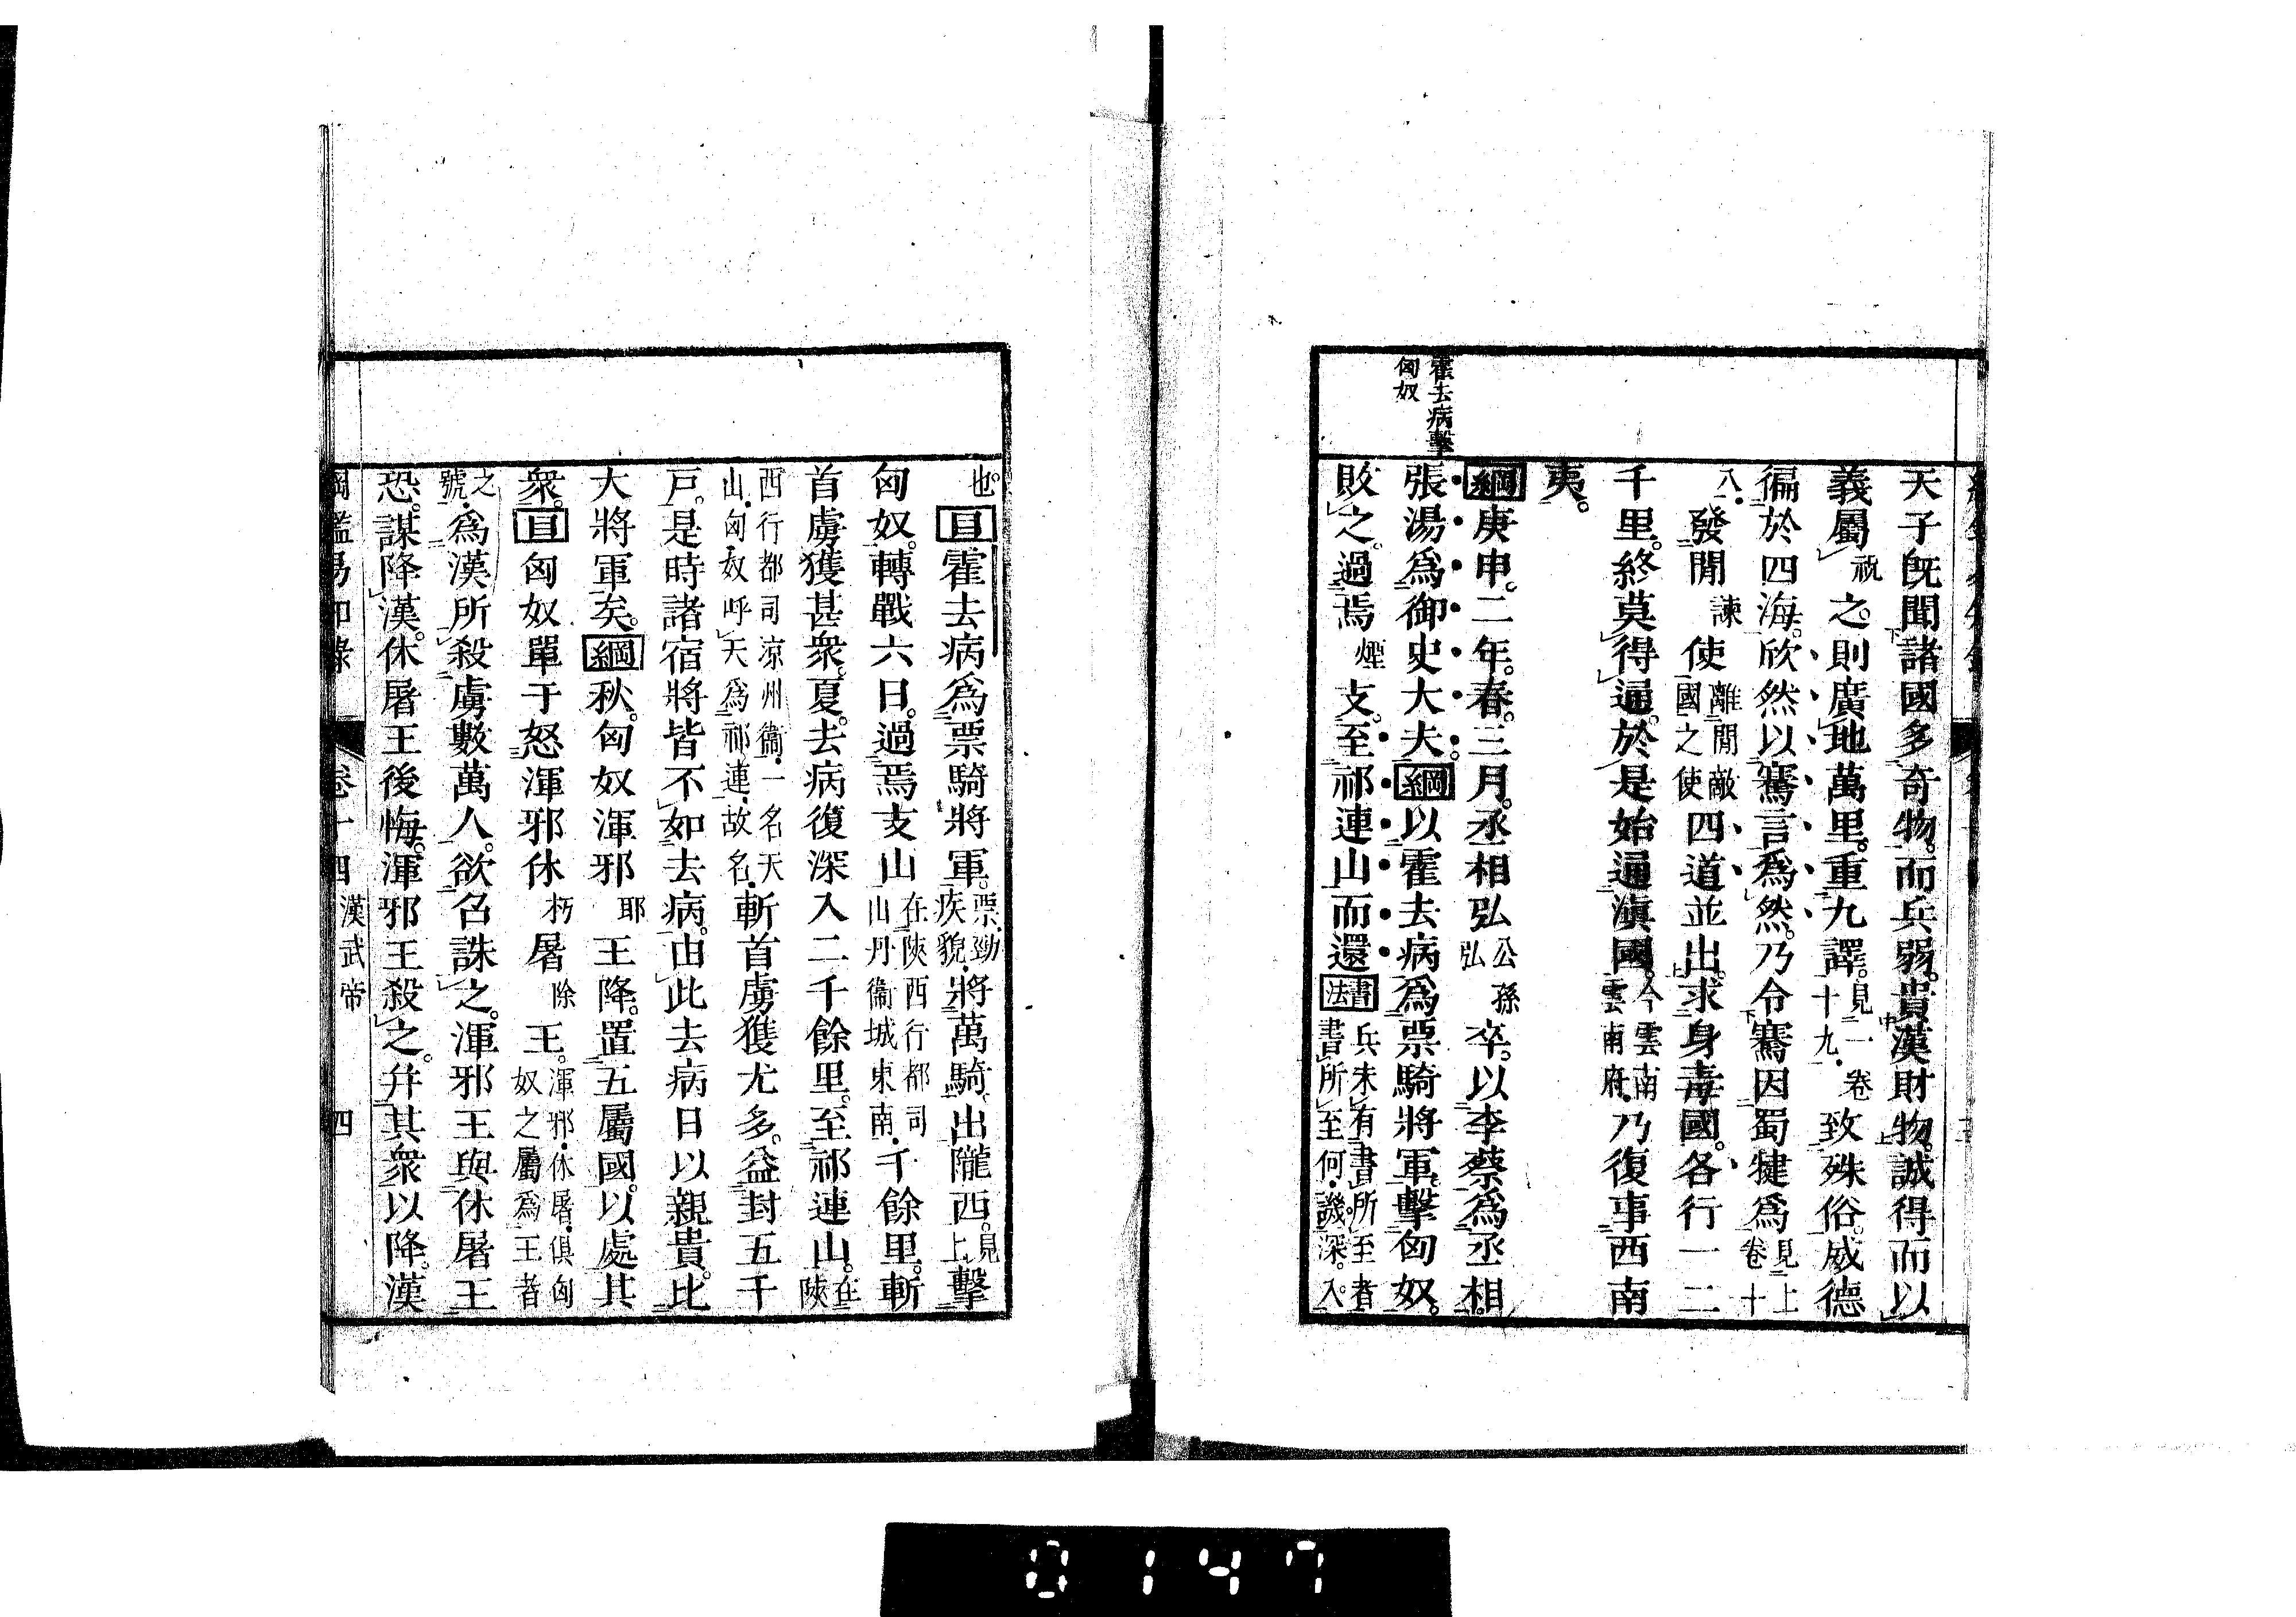 霍去病擊
匈奴
天子既聞諸國多奇物。而兵弱。貴漢財物。誠得而以
義屬祝之。則廣地萬里。重九譯。見二卷十九。致殊俗。威德
徧於四海。欣然以騫言爲然。乃令騫因蜀犍爲見上卷十
八。發閒諫使離閒敵國之使四道並出。求身毒國。各行一二
千里。終莫得通。於是始通滇國。今雲南雲南府。乃復事西南
夷。
綱庚申。二年。春。三月。丞相弘公孫弘卒。以李蔡爲丞相。
張湯爲御史大夫。綱以霍去病爲票騎將軍。擊匈奴。
敗之。過焉煙支。至祁連山而還書法兵未有書所至者書所至何。譏深。入。
也。目霍去病爲票騎將軍。票。勁疾貌。將萬騎。出隴西。見上擊
匈奴。轉戰六日。過焉支山在陝西行都司山丹衞城東南。千餘里。斬
首虜獲甚衆。夏。去病復深入二千餘里。至祁連山。在陝
西行都司涼州衞。一名天山。匈奴呼天爲祁連。故名。斬首虜獲尤多。益封五千
戶。是時諸宿將皆不如去病。由此去病日以親貴。比
大將軍矣。綱秋。匈奴渾邪耶王降。置五屬國。以處其
衆。目匈奴單于怒渾邪休朽屠除王。渾邪。休屠。俱匈奴之屬爲王者
之號。爲漢所殺虜數萬人。欲召誅之。渾邪王與休屠王
恐。謀降漢。休屠王後悔。渾邪王殺之。幷其衆以降。漢
綱鑑易知錄 卷十四 漢武帝 四